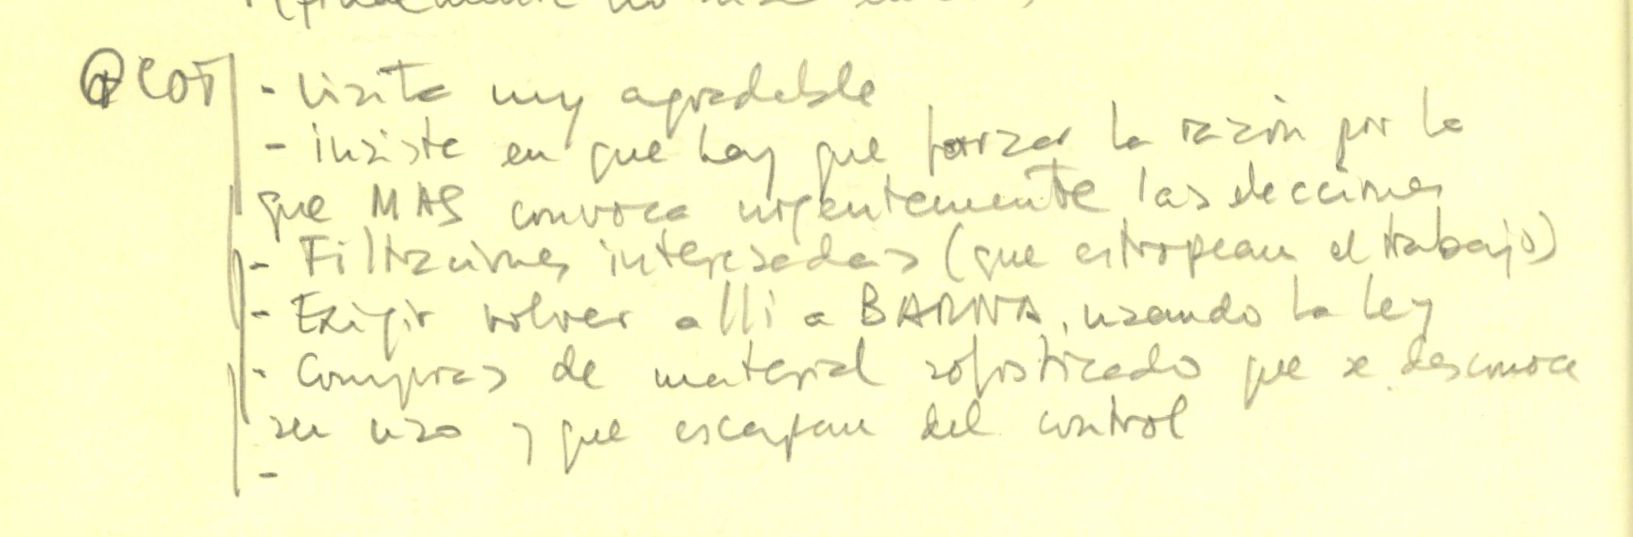 COT - Visita muy agradable
- insiste en que hay que forzar la razón por la
que MAS convoca urgentemente las elecciones
- Filtraciones interesadas (que estropean el trabajo)
- Exigir volver alli a BARNA, usando la ley
- Compras de material sofisticado que se desconoce
su uso y que escapan del control
-